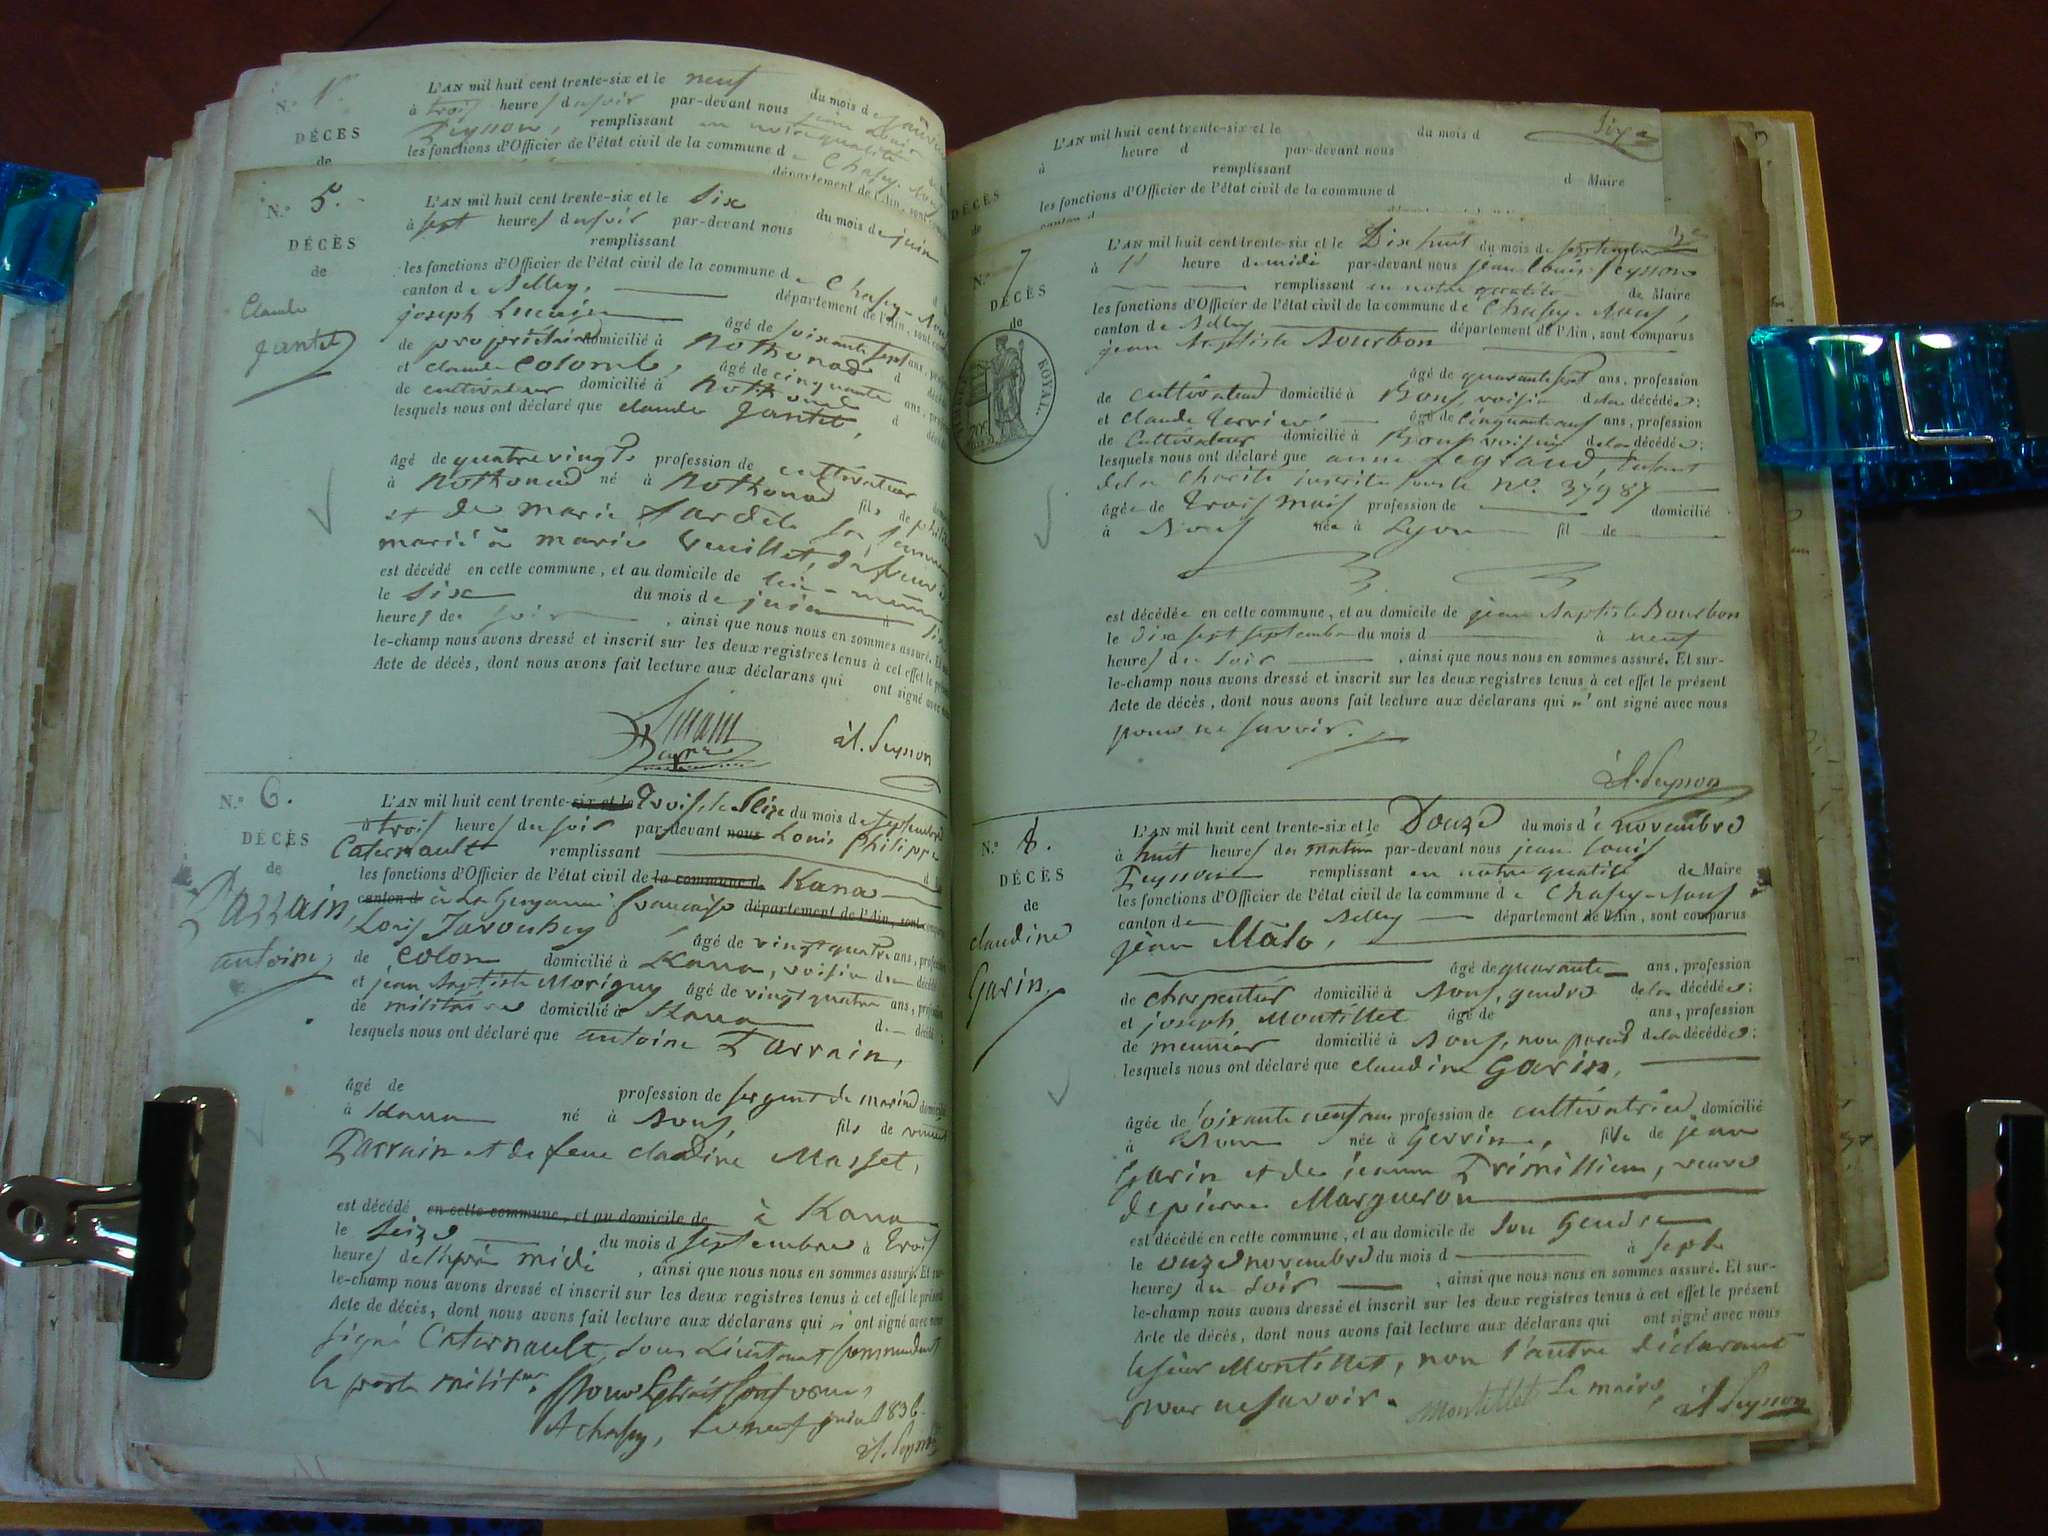 N.° 1er
DÉCÈS
de
L'AN mil huit cent trente-six et le neuf du mois de janvier
à trois heures du soir par-devant nous jean Louis
Peysson, remplissant en notre qualité
les fonctions d'Officier de l'état civil de la commune de Chazey-
département de l'Ain, sont
N.° 5.
DÉCÈS
de
Claude
Jantet
L'AN mil huit cent trente-six et le Six du mois de juin
à sept heures du soir par-devant nous
remplissant
les fonctions d'Officier de l'état civil de la commune de Chazey-
canton de Belley, département de l'Ain, sont
joseph âgé de soixante sept ans,
de propriétaire domicilié à Rothonod d
et claude Colomb, âgé de cinquante ans,
de cultivateur domicilié à Rothonod d
lesquels nous ont déclaré que claude Jantet,
âgé de quatre vingts profession de cultivateur
à Rothonod né à Rothonod fils de
et de marie Sardele sa femme
marié à marie Veuillet,
est décédé en cette commune, et au domicile de lui-même
le six du mois de juin à
heures de soir, ainsi que nous nous en sommes assuré. Et
le-champ nous avons dressé et inscrit sur les deux registres tenus à cet effet le présent
Acte de décès, dont nous avons fait lecture aux déclarans qui ont signé avec
Maire
jl. Peysson
N.° 6.
DÉCÈS
de
Parrain,
antoine
L'AN mil huit cent trente-six et le Trois, le Seize du mois de septembre
à trois heures du soir par-devant nous Louis Philippe
Caternault remplissant
les fonctions d'Officier de l'état civil de la commune d Kana
canton d à La française département de l'Ain, sont
Louis âgé de vingt quatre ans,
de Colon domicilié à Kana, voisin du
et jean Baptiste Morigny âgé de vingt quatre ans,
de militaire domicilié à Kana d décédé;
lesquels nous ont déclaré que antoine Parrain,
âgé de profession de sergent de marine
à Kana né à Bons, fils de vincent
Parrain et de feue claudine Masset,
est décédé en cette commune, et au domicile de à Kana
le Seize du mois d septembre à trois
heures de l'après midi, ainsi que nous nous en sommes assuré. Et sur-
le-champ nous avons dressé et inscrit sur les deux registres tenus à cet effet le présent
Acte de décès, dont nous avons fait lecture aux déclarans qui n'ont signé avec nous
signé Caternault, Sous Lieutenant Commandant
le poste milit.re Pour Extrait conforme,
A chazey, le neuf juin 1836.
jl. Peysson
L'AN mil huit cent trente-six et le du mois d Six
à heure d par-devant nous
remplissant d Maire
les fonctions d'Officier de l'état civil de la commune d
canton d
DÉCÈS
de
3e
N.° 7
DÉCÈS
de
TIMBRE ROYAL.
L'AN mil huit cent trente-six et le Dix huit du mois de septembre
à 1e heure de midi par-devant nous jean Louis Peysson
remplissant en notre qualité de Maire
les fonctions d'Officier de l'état civil de la commune de Chazey-Bons,
canton de Belley département de l'Ain, sont comparus
jean Baptiste Bourbon
âgé de quarante sept ans, profession
de cultivateur domicilié à Bons, voisin de la décédée;
et claude Terrier âgé de cinquante ans, profession
de Cultivateur domicilié à Bons, voisin de la décédée;
lesquels nous ont déclaré que anne Legraud, Enfant
de la charité inscrite sous le N°. 37987
âgée de Trois mois profession de domicilié
à Bons née à Lyon fil de
est décédée en cette commune, et au domicile de jean Baptiste Bourbon
le Dix sept septembre du mois d à neuf
heures du soir, ainsi que nous nous en sommes assuré. Et sur-
le-champ nous avons dressé et inscrit sur les deux registres tenus à cet effet le présent
Acte de décès, dont nous avons fait lecture aux déclarans qui n'ont signé avec nous
pour ne savoir.
jl. Peysson
N.° 8.
DÉCÈS
de
claudine
Garin.
L'AN mil huit cent trente-six et le Douze du mois de novembre
à huit heures du matin par-devant nous jean Louis
Peysson remplissant en notre qualité de Maire
les fonctions d'Officier de l'état civil de la commune de Chazey-Bons
canton de Belley département de l'Ain, sont comparus
jean Malo,
âgé de quarante ans, profession
de charpentier domicilié à Bons, gendre de la décédée;
et joseph Montillet âgé de ans, profession
de meunier domicilié à Bons, non parent de la décédée;
lesquels nous ont déclaré que claudine Garin,
âgée de soixante neuf ans profession de cultivatrice domicilié
à Bons née à fille de jean
Garin et de jeanne Primillieu, veuve
de pierre Margueron
est décédée en cette commune, et au domicile de Son Gendre
le onze novembre du mois d à Sept
heures du Soir, ainsi que nous nous en sommes assuré. Et sur-
le-champ nous avons dressé et inscrit sur les deux registres tenus à cet effet le présent
Acte de décès, dont nous avons fait lecture aux déclarans qui ont signé avec nous
le sieur Montillet, non l'autre Déclarant
pour ne savoir. Montillet Le maire, jl Peysson